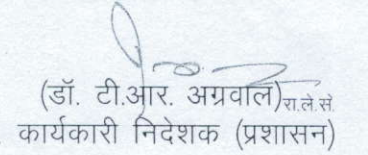 (डॉ. टी.आर. अग्रवाल)रा.ले.से.
कार्यकारी निदेशक (प्रशासन)